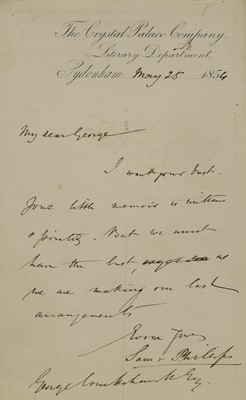 The Crystal Palace Company,
Literary Department,
Sydenham May 25 1854
My dear George
I want your bust.
Your little memoir is written
& printed. But we must
have the bust, as
we are making our last
arrangements
Ever Yrs
Saml Phillips
George Cruikshank Esq.